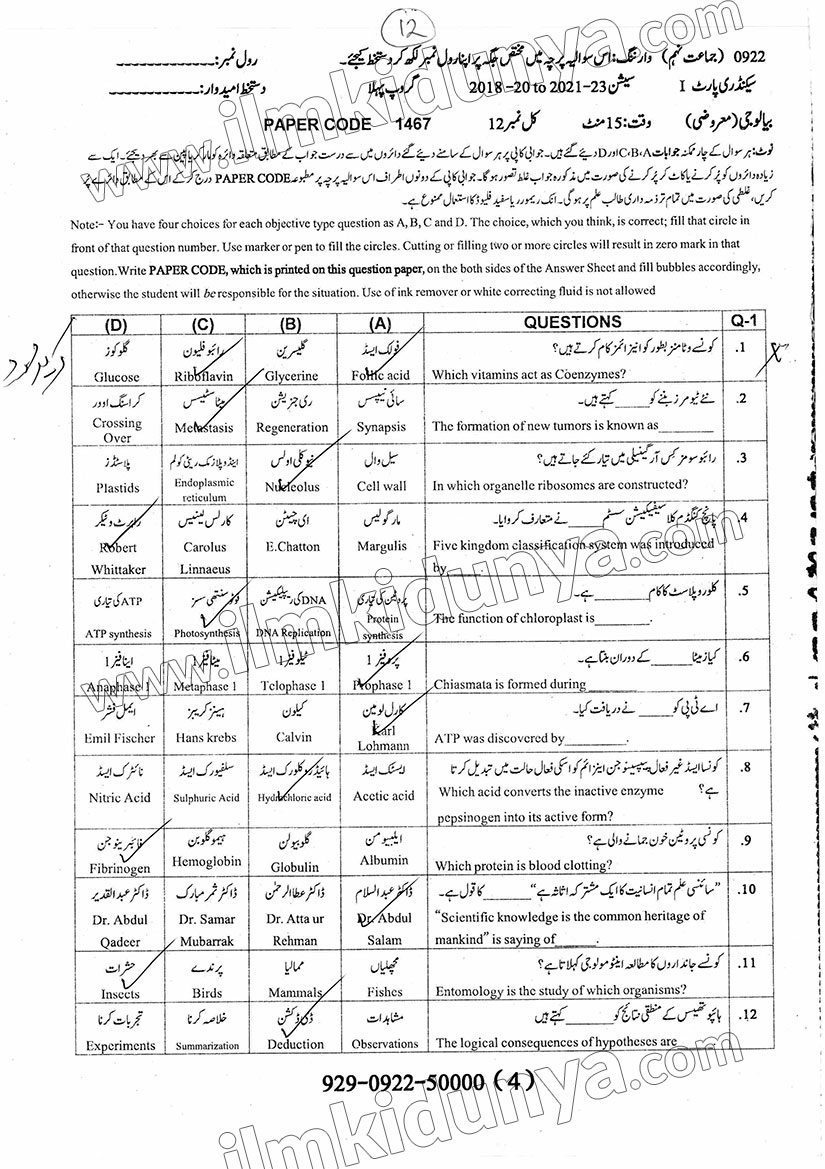 12
0922 (جماعت نہم) وارننگ: اس سوالیہ پرچہ میں مختص جگہ پر اپنا رول نمبر لکھ کر دستخط کیجئے۔ رول نمبر: ____________
سیکنڈری پارٹ I سیشن 2018 -20 to 2021 -23 گروپ پہلا دستخط امیدوار: ____________
بیالوجی (معروضی) وقت: 15 منٹ کل نمبر 12 PAPER CODE 1467
نوٹ: ہر سوال کے چار ممکنہ جوابات C،B،A اور D دیئے گئے ہیں۔ جوابی کاپی پر ہر سوال کے سامنے دیئے گئے دائروں میں سے درست جواب کے مطابق متعلقہ دائرہ کو مارکر یا پین سے بھر دیجئے۔ ایک سے
زیادہ دائروں کو پُر کرنے یا کاٹ کر پُر کرنے کی صورت میں مذکورہ جواب غلط تصور ہو گا۔ جوابی کاپی کے دونوں اطراف اس سوالیہ پرچہ پر مطبوعہ PAPER CODE درج کر کے اس کے مطابق دائرے پُر
کریں، غلطی کی صورت میں تمام تر ذمہ داری طالب علم پر ہو گی۔ انک ریمور یا سفید فلیوڈ کا استعمال ممنوع ہے۔
Note:- You have four choices for each objective type question as A, B, C and D. The choice, which you think, is correct; fill that circle in
front of that question number. Use marker or pen to fill the circles. Cutting or filling two or more circles will result in zero mark in that
question.Write PAPER CODE, which is printed on this question paper, on the both sides of the Answer Sheet and fill bubbles accordingly,
otherwise the student will be responsible for the situation. Use of ink remover or white correcting fluid is not allowed
(D) (C) (B) (A) QUESTIONS Q-1
گلوکوز رائبو فلیون گلیسرین فولک ایسڈ کونسے وٹامنز بطور کو انیزائمز کام کرتے ہیں؟ .1
Glucose Riboflavin Glycerine Follic acid Which vitamins act as Coenzymes?
کراسنگ اوور میٹاسٹیسس ری جنریشن سائی نیپسس نئے ٹیومرز بننے کو _____ کہتے ہیں۔ .2
Crossing Over Metastasis Regeneration Synapsis The formation of new tumors is known as________
پلاسٹڈز اینڈوپلازمک ریٹی کولم نیوکلی اولس سیل وال رائبوسومز کس آرگنیلی میں تیار کئے جاتے ہیں؟ .3
Plastids Endoplasmic reticulum Nucleolus Cell wall In which organelle ribosomes are constructed?
رابرٹ وٹیکر کارلس لینیئس ای چیٹن مارگولیس پانچ کنگڈم کلاسیفیکیشن سسٹم _____ نے متعارف کروایا۔ .4
Robert Whittaker Carolus Linnaeus E.Chatton Margulis Five kingdom classification system was introduced
by_____
ATP کی تیاری فوٹو سنتھی سز DNA کی ریپلیکیشن پروٹین کی تیاری کلوروپلاسٹ کا کام _____ ہے۔ .5
ATP synthesis Photosynthesis DNA Replication Protein synthesis The function of chloroplast is________.
اینافیز 1 میٹافیز 1 ٹیلوفیز 1 پروفیز 1 کیازمیٹا _____ کے دوران بنتا ہے۔ .6
Anaphase 1 Metaphase 1 Telophase 1 Prophase 1 Chiasmata is formed during________
ایمل فشر ہینز کربز کیلون کارل لومین اے ٹی پی کو _____ نے دریافت کیا۔ .7
Emil Fischer Hans krebs Calvin Karl Lohmann ATP was discovered by________.
نائٹرک ایسڈ سلفیورک ایسڈ ہائیڈروکلورک ایسڈ ایسٹک ایسڈ کونسا ایسڈ غیر فعال پیپسینوجن اینزائم کو اسکی فعال حالت میں تبدیل کرتا ہے؟ .8
Nitric Acid Sulphuric Acid Hydrochloric acid Acetic acid Which acid converts the inactive enzyme
pepsinogen into its active form?
فائبرینوجن ہیموگلوبن گلوبیولن ایلبیومن کونسی پروٹین خون جمانے والی ہے؟ .9
Fibrinogen Hemoglobin Globulin Albumin Which protein is blood clotting?
ڈاکٹر عبدالقدیر ڈاکٹر ثمر مبارک ڈاکٹر عطاالرحمٰن ڈاکٹر عبدالسلام "سائنسی علم تمام انسانیت کا ایک مشترکہ اثاثہ ہے" _____ کا قول ہے۔ .10
Dr. Abdul Qadeer Dr. Samar Mubarrak Dr. Atta ur Rehman Dr. Abdul Salam "Scientific knowledge is the common heritage of
mankind" is saying of______.
حشرات پرندے ممالیا مچھلیاں کونسے جانداروں کا مطالعہ اینٹومولوجی کہلاتا ہے؟ .11
Insects Birds Mammals Fishes Entomology is the study of which organisms?
تجربات کرنا خلاصہ کرنا ڈی ڈکشن مشاہدات ہائپوتھیسس کے منطقی نتائج کو _____ کہتے ہیں .12
Experiments Summarization Deduction Observations The logical consequences of hypotheses are_____
929-0922-50000 (4)
www.ilmkidunya.com
www.ilmkidunya.com
www.ilmkidunya.com
ilmkidunya.com